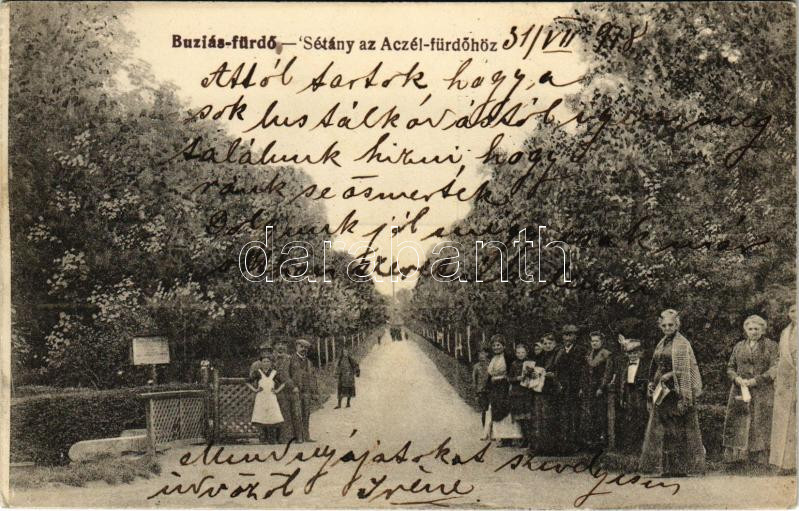 Buziás-fürdő — Sétány az Aczél-fürdőhöz 31/VII 918
Attól tartok hogy a
sok hustálkóvástól igen meg
találunk hizni, hogy
ránk se ösmertek
jól
darabanth
Mindnyájatokat szivélyesen
üdvözöl Iréne